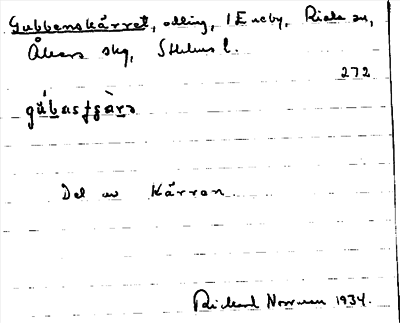 Gubbenskärret, odling, 1 Eneby, Riala sn,
Åkers skg, Sthlms l.
272
Del av Kärren
Rickard Norrman 1934.